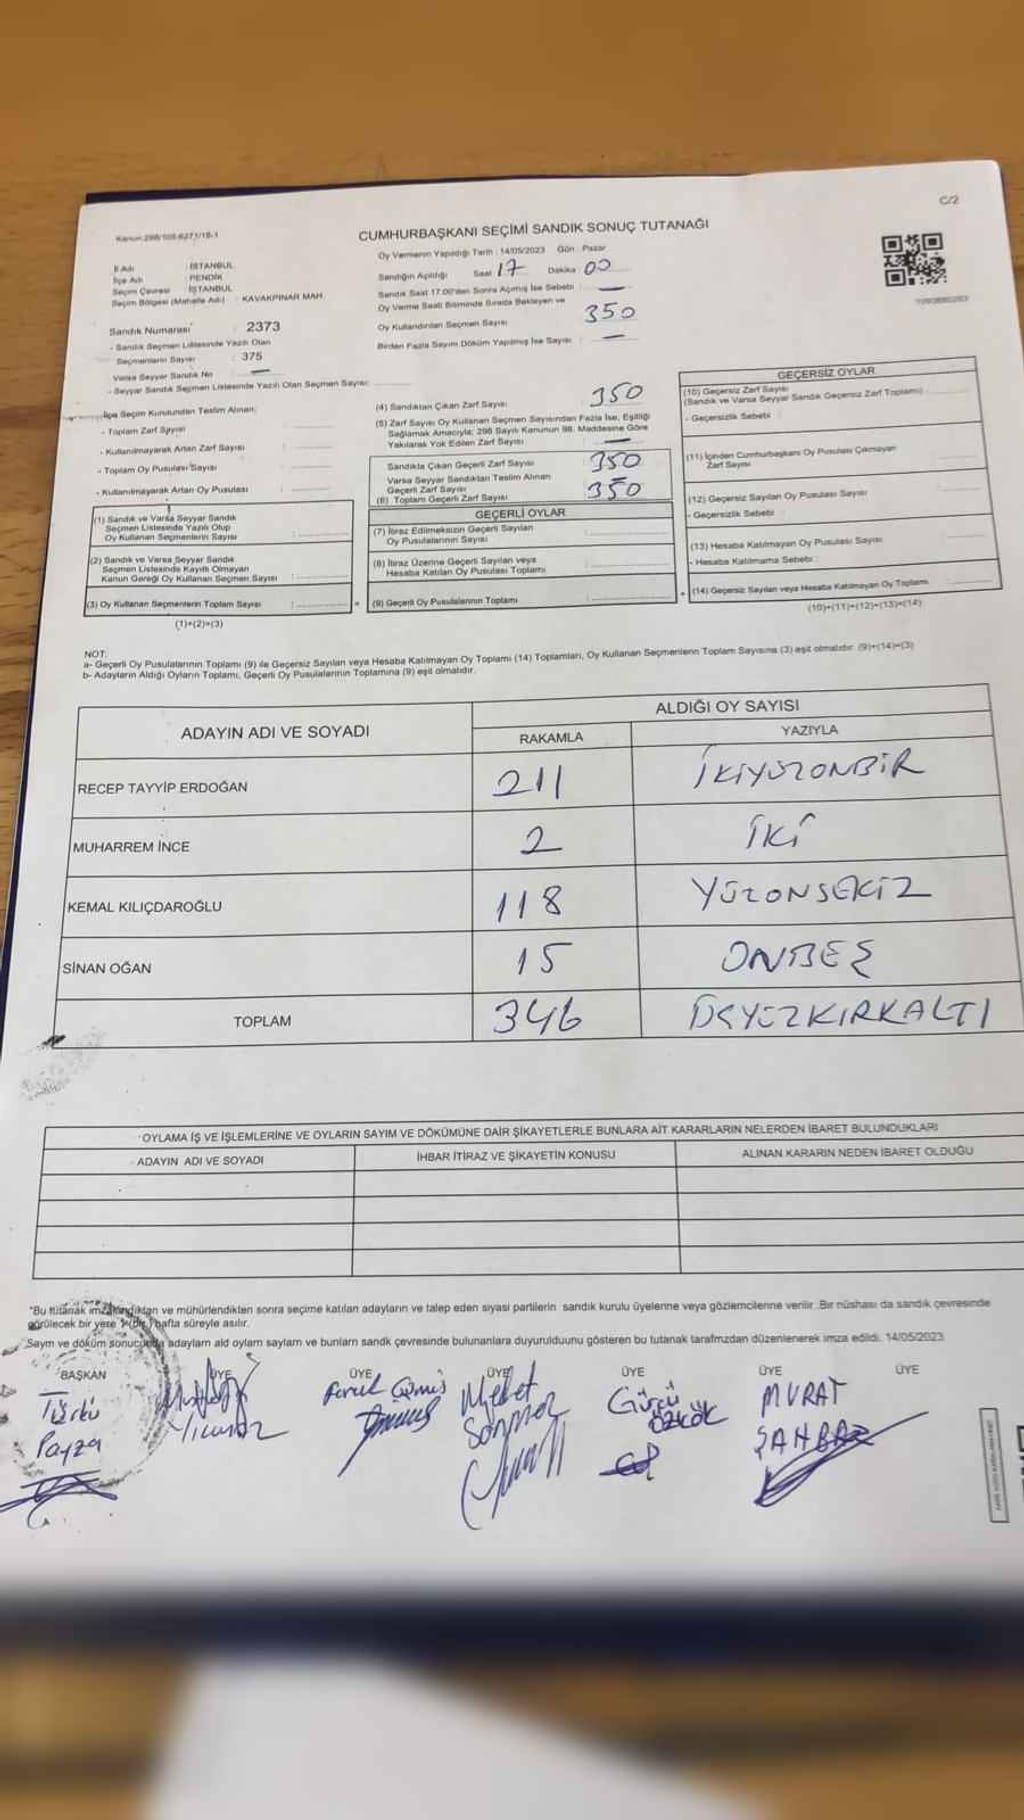 C/2
Kanun:298/105-6271/18-1
CUMHURBAŞKANI SEÇİMİ SANDIK SONUÇ TUTANAĞI
İl Adı : İSTANBUL
İlçe Adı : PENDİK
Seçim Çevresi : İSTANBUL
Seçim Bölgesi (Mahalle Adı) : KAVAKPINAR MAH.
Sandık Numarası : 2373
- Sandık Seçmen Listesinde Yazılı Olan
Seçmenlerin Sayısı : 375
Varsa Seyyar Sandık No —
- Seyyar Sandık Seçmen Listesinde Yazılı Olan Seçmen Sayısı:
Oy Vermenin Yapıldığı Tarih : 14/05/2023 Gün : Pazar
Sandığın Açıldığı Saat 17 Dakika 00
Sandık Saat 17.00'den Sonra Açılmış İse Sebebi : —
Oy Verme Saati Bitiminde Sırada Bekleyen ve
Oy Kullandırılan Seçmen Sayısı : 350
Birden Fazla Sayım Döküm Yapılmış İse Sayısı : —
İlçe Seçim Kurulundan Teslim Alınan;
- Toplam Zarf Sayısı :
- Kullanılmayarak Artan Zarf Sayısı :
- Toplam Oy Pusulası Sayısı :
- Kullanılmayarak Artan Oy Pusulası :
(1) Sandık ve Varsa Seyyar Sandık
Seçmen Listesinde Yazılı Olup
Oy Kullanan Seçmenlerin Sayısı :
(2) Sandık ve Varsa Seyyar Sandık
Seçmen Listesinde Kayıtlı Olmayan
Kanun Gereği Oy Kullanan Seçmen Sayısı :
(3) Oy Kullanan Seçmenlerin Toplam Sayısı :
(1)+(2)=(3)
(4) Sandıktan Çıkan Zarf Sayısı : 350
(5) Zarf Sayısı Oy Kullanan Seçmen Sayısından Fazla İse, Eşitliği
Sağlamak Amacıyla; 298 Sayılı Kanunun 98. Maddesine Göre
Yakılarak Yok Edilen Zarf Sayısı : —
Sandıkta Çıkan Geçerli Zarf Sayısı : 350
Varsa Seyyar Sandıktan Teslim Alınan
Geçerli Zarf Sayısı
(6) Toplam Geçerli Zarf Sayısı : 350
GEÇERLİ OYLAR
(7) İtiraz Edilmeksizin Geçerli Sayılan
Oy Pusulalarının Sayısı :
(8) İtiraz Üzerine Geçerli Sayılan veya
Hesaba Katılan Oy Pusulası Toplamı :
(9) Geçerli Oy Pusulalarının Toplamı :
GEÇERSİZ OYLAR
(10) Geçersiz Zarf Sayısı
(Sandık ve Varsa Seyyar Sandık Geçersiz Zarf Toplamı) :
- Geçersizlik Sebebi :
(11) İçinden Cumhurbaşkanı Oy Pusulası Çıkmayan
Zarf Sayısı :
(12) Geçersiz Sayılan Oy Pusulası Sayısı :
- Geçersizlik Sebebi :
(13) Hesaba Katılmayan Oy Pusulası Sayısı :
- Hesaba Katılmama Sebebi :
(14) Geçersiz Sayılan veya Hesaba Katılmayan Oy Toplamı :
(10)+(11)+(12)+(13)=(14)
NOT:
a- Geçerli Oy Pusulalarının Toplamı (9) ile Geçersiz Sayılan veya Hesaba Katılmayan Oy Toplamı (14) Toplamları, Oy Kullanan Seçmenlerin Toplam Sayısına (3) eşit olmalıdır. (9)+(14)=(3)
b- Adayların Aldığı Oyların Toplamı, Geçerli Oy Pusulalarının Toplamına (9) eşit olmalıdır.
ADAYIN ADI VE SOYADI ALDIĞI OY SAYISI
RAKAMLA YAZIYLA
RECEP TAYYİP ERDOĞAN 211 İKİYÜZONBİR
MUHARREM İNCE 2 İKİ
KEMAL KILIÇDAROĞLU 118 YÜZONSEKİZ
SİNAN OĞAN 15 ONBEŞ
TOPLAM 346 ÜÇYÜZKIRKALTI
OYLAMA İŞ VE İŞLEMLERİNE VE OYLARIN SAYIM VE DÖKÜMÜNE DAİR ŞİKAYETLERLE BUNLARA AİT KARARLARIN NELERDEN İBARET BULUNDUKLARI
ADAYIN ADI VE SOYADI İHBAR İTİRAZ VE ŞİKAYETİN KONUSU ALINAN KARARIN NEDEN İBARET OLDUĞU
"Bu tutanak imzalandıktan ve mühürlendikten sonra seçime katılan adayların ve talep eden siyasi partilerin sandık kurulu üyelerine veya gözlemcilerine verilir. Bir nüshası da sandık çevresinde
görülecek bir yere 1 (bir) hafta süreyle asılır.
Sayım ve döküm sonucunda adayların aldığı oyların sayıları ve bunların sandık çevresinde bulunanlara duyurulduğunu gösteren bu tutanak tarafımızdan düzenlenerek imza edildi. 14/05/2023
BAŞKAN ÜYE ÜYE ÜYE ÜYE ÜYE ÜYE
Türkü Faruk Gümüş Mehmet Gürcü MURAT
Payza Yılmaz Sönmez ÖZKÖK ŞAHBAZ